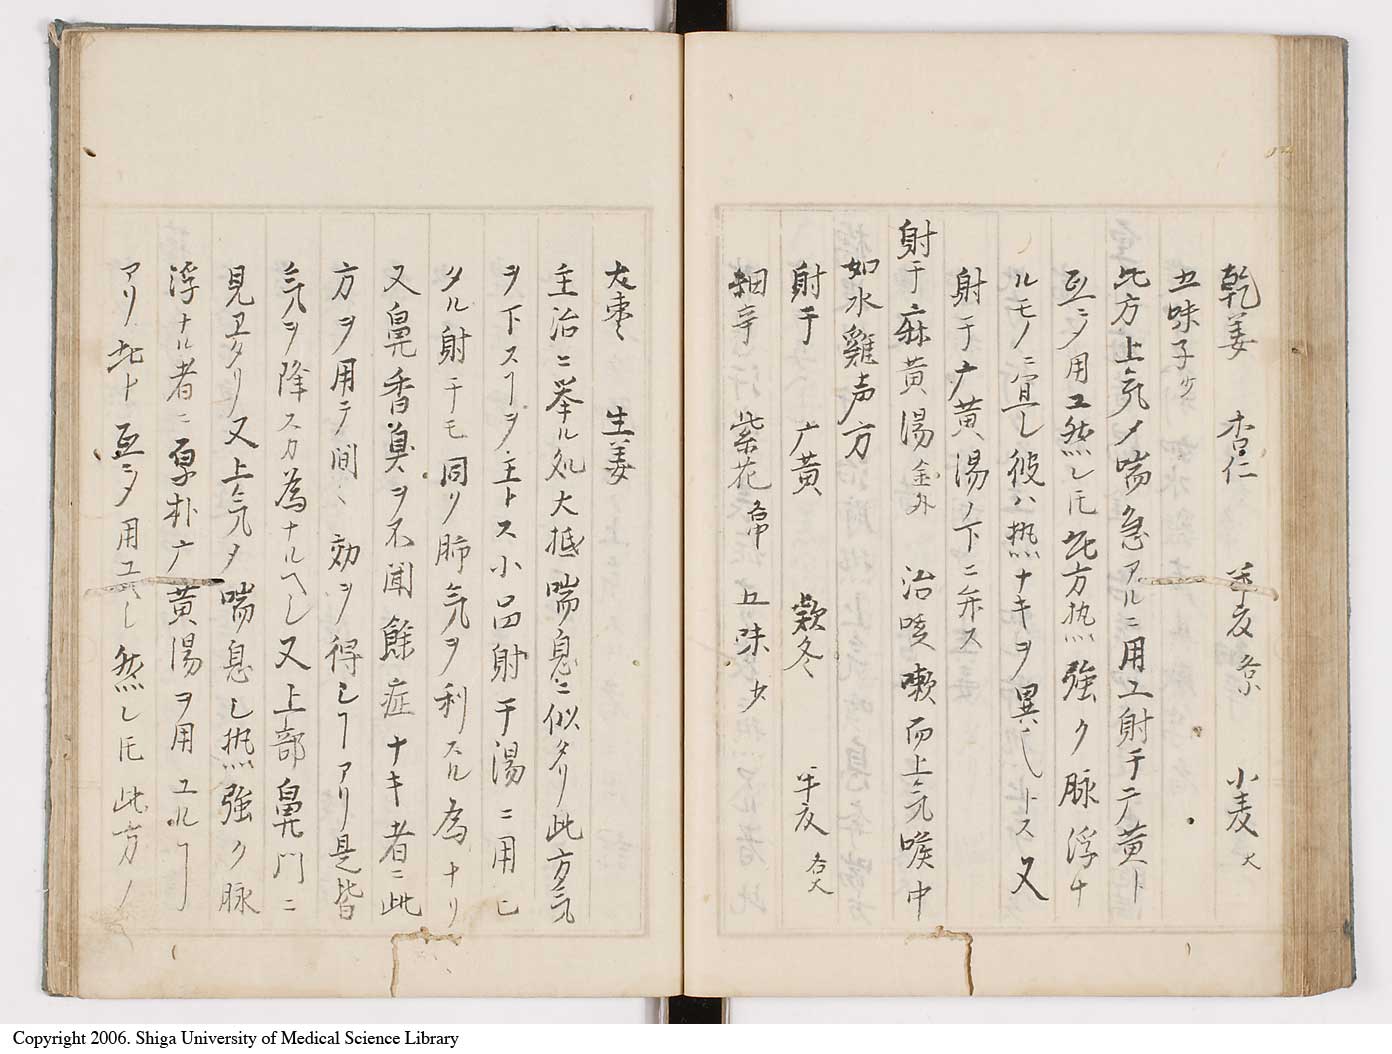 乾姜 杏仁 半夏 各京 小麦 大
五味子 少
此方上気メ喘急アルニ用ユ射干广黄ト
互ニシタ用ユ然レ𪜈此方热強ク脉浮ナ
ルモノニ宜し彼ハ热ナキヲ異しトス又
射干广黄湯ノ下ニ弁ス
射干麻黄湯 金外 治咳嗽而上気喉中
如水雞声方
射干 广黄 欵冬 半夏 各大
細辛 紫花 各中 五味 少
大棗 生姜
主治ニ挙ル処大抵喘息ニ似タリ此方気
ヲ下スヿヲ主トス小品射干湯ニ用ヒ
タル射干モ同リ肺気ヲ利スル為ナリ
又鼻香臭ヲ不聞餘症ナキ者ニ此
方ヲ用テ間々効ヲ得しヿアリ是皆
気ヲ降スカ為ナルヘし又上部鼻門ニ
見ヱタリ又上気メ喘息し热強ク脉
浮ナル者ニ厚朴广黄湯ヲ用ユルヿ
アリ此ト互ニシタ用ユヘし然し𪜈此方ノ
Copyright 2006. Shiga University of Medical Science Library